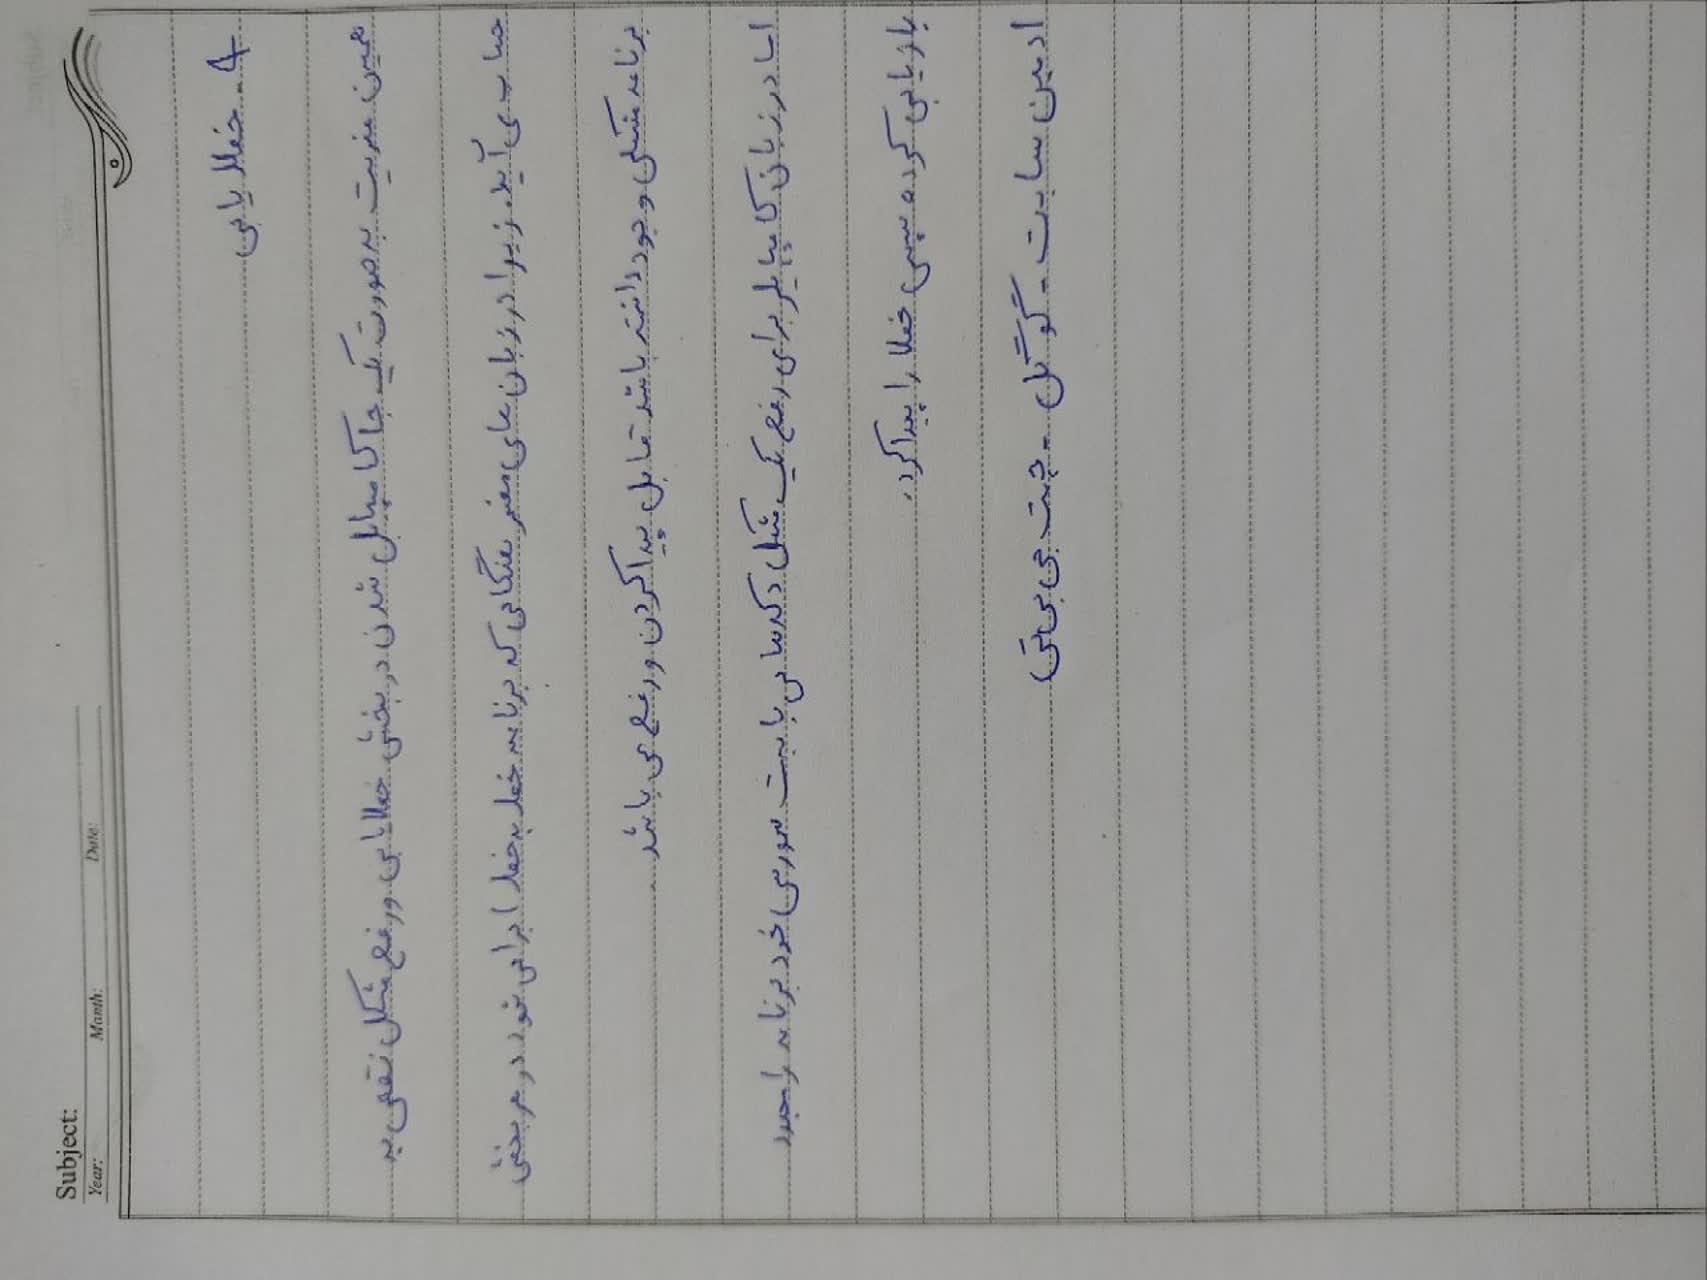 Subject:
Year: Month: Date:
۴- خطایابی
همین مزیت به صورت یک جا کامپایل شدن در بخش خطایابی و رفع مشکل نقص به
حساب می آید. زیرا در زبان های مفسر هنگامی که برنامه خط به خط اجرا می شود در هر بخش
برنامه مشکلی وجود داشته باشد قابل پیدا کردن و رفع می باشد.
اما در زبان کامپایلر برای رفع یک مشکل دکدهای بایت موردی خود برنامه را مجدد
بازیابی کرده سپس خطا را پیدا کرد.
ادمین سایت - گوگل - چت جی پی تی)